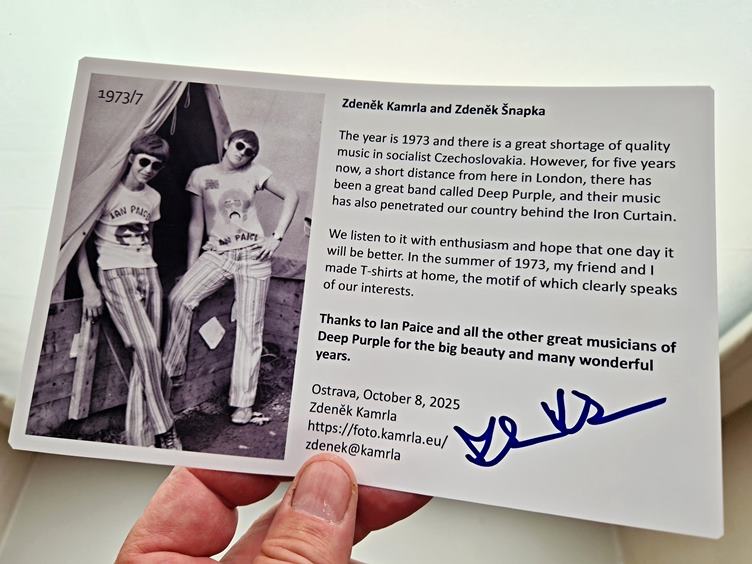 1973/7
IAN PAICE
IAN PAICE
Zdeněk Kamrla and Zdeněk Šnapka
The year is 1973 and there is a great shortage of quality
music in socialist Czechoslovakia. However, for five years
now, a short distance from here in London, there has
been a great band called Deep Purple, and their music
has also penetrated our country behind the Iron Curtain.
We listen to it with enthusiasm and hope that one day it
will be better. In the summer of 1973, my friend and I
made T-shirts at home, the motif of which clearly speaks
of our interests.
Thanks to Ian Paice and all the other great musicians of
Deep Purple for the big beauty and many wonderful
years.
Ostrava, October 8, 2025
Zdeněk Kamrla
https://foto.kamrla.eu/
zdenek@kamrla